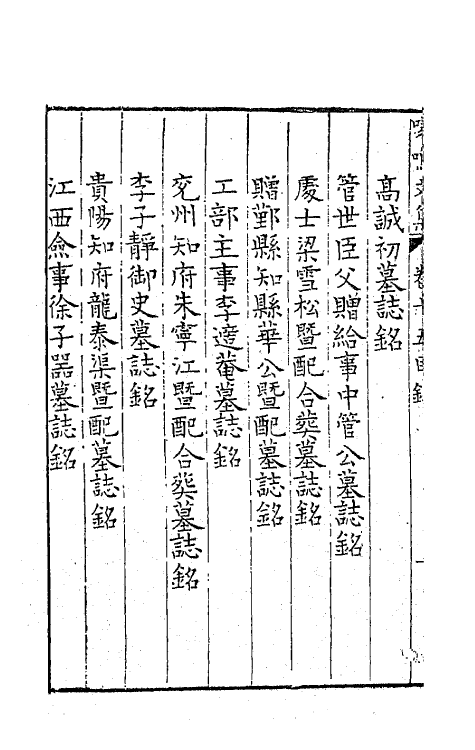 高誠初墓誌銘
管世臣父贈給事中管公墓誌銘
處士梁雪松暨配合葬墓誌銘
贈鄞縣知縣華公暨配墓誌銘
工部主事李邃菴墓誌銘
兖州知府朱寧江暨配合葬墓誌銘
李子靜御史墓誌銘
貴陽知府龍泰渠暨配墓誌銘
江西僉事徐子器墓誌銘